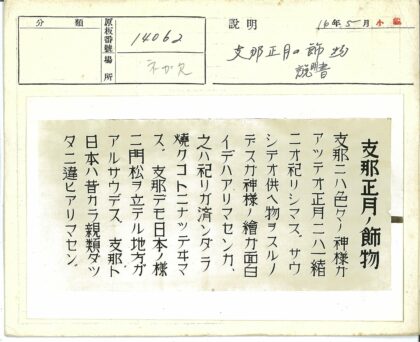 分類
原板番號場所
14062
ネガ欠
説明
16年5月
支那正月の飾物
説明書
支那正月ノ飾物
支那ニハ色々ノ神様ガ
アツテオ正月ニハ一緒
ニオ祀リシマス。サウ
シテオ供ヘ物ヲスルノ
デスガ神様ノ繪ガ面白
イデハアリマセンカ、
之ハ祀リガ済ンダラ
燒クコトニナツテヰマ
ス。支那デモ日本ノ様
ニ門松ヲ立テル地方ガ
アルサウデス。支那ト
日本ハ昔カラ親類ダツ
タニ違ヒアリマセン。